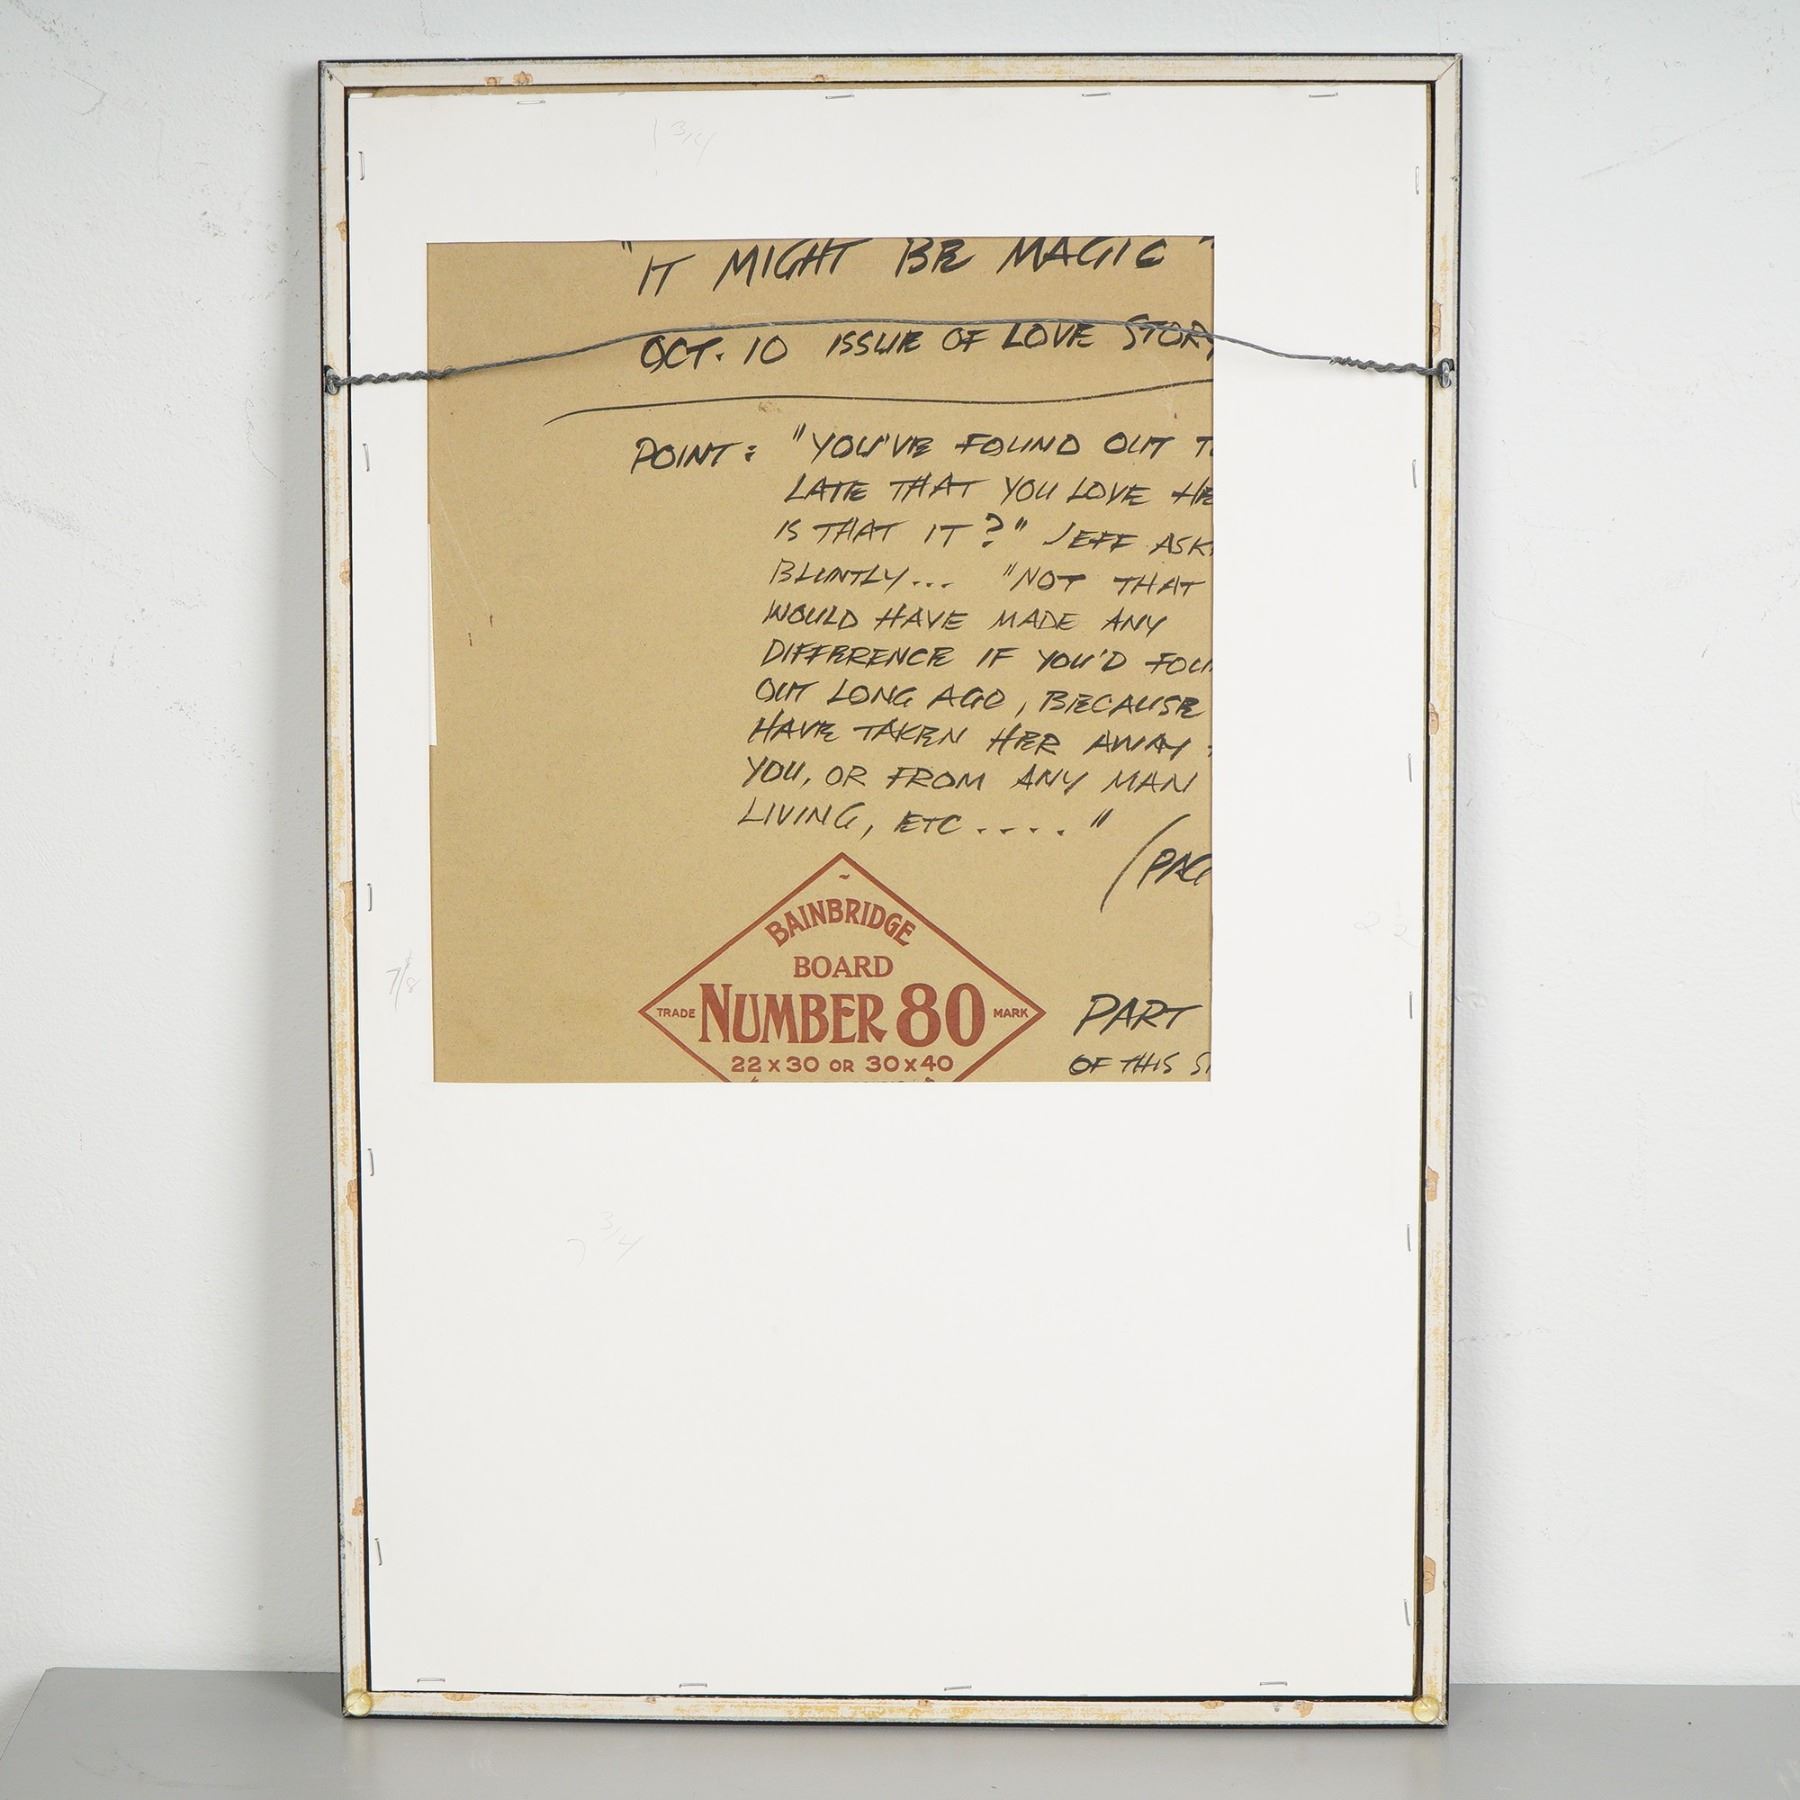 1 3/4
"IT MIGHT BE MAGIC"
OCT. 10 ISSUE OF LOVE STORY
POINT: "YOU'VE FOUND OUT
LATE THAT YOU LOVE HE
IS THAT IT?" JEFF ASK
BLUNTLY... "NOT THAT
WOULD HAVE MADE ANY
DIFFERENCE IF YOU'D FOU
OUT LONG AGO, BECAUSE
HAVE TAKEN HER AWAY
YOU, OR FROM ANY MAN
LIVING, ETC....."
(PAG
BAINBRIDGE
BOARD
TRADE NUMBER 80 MARK
22 X 30 OR 30 X 40
PART
OF THIS
7/8
2 1/2
7 3/4